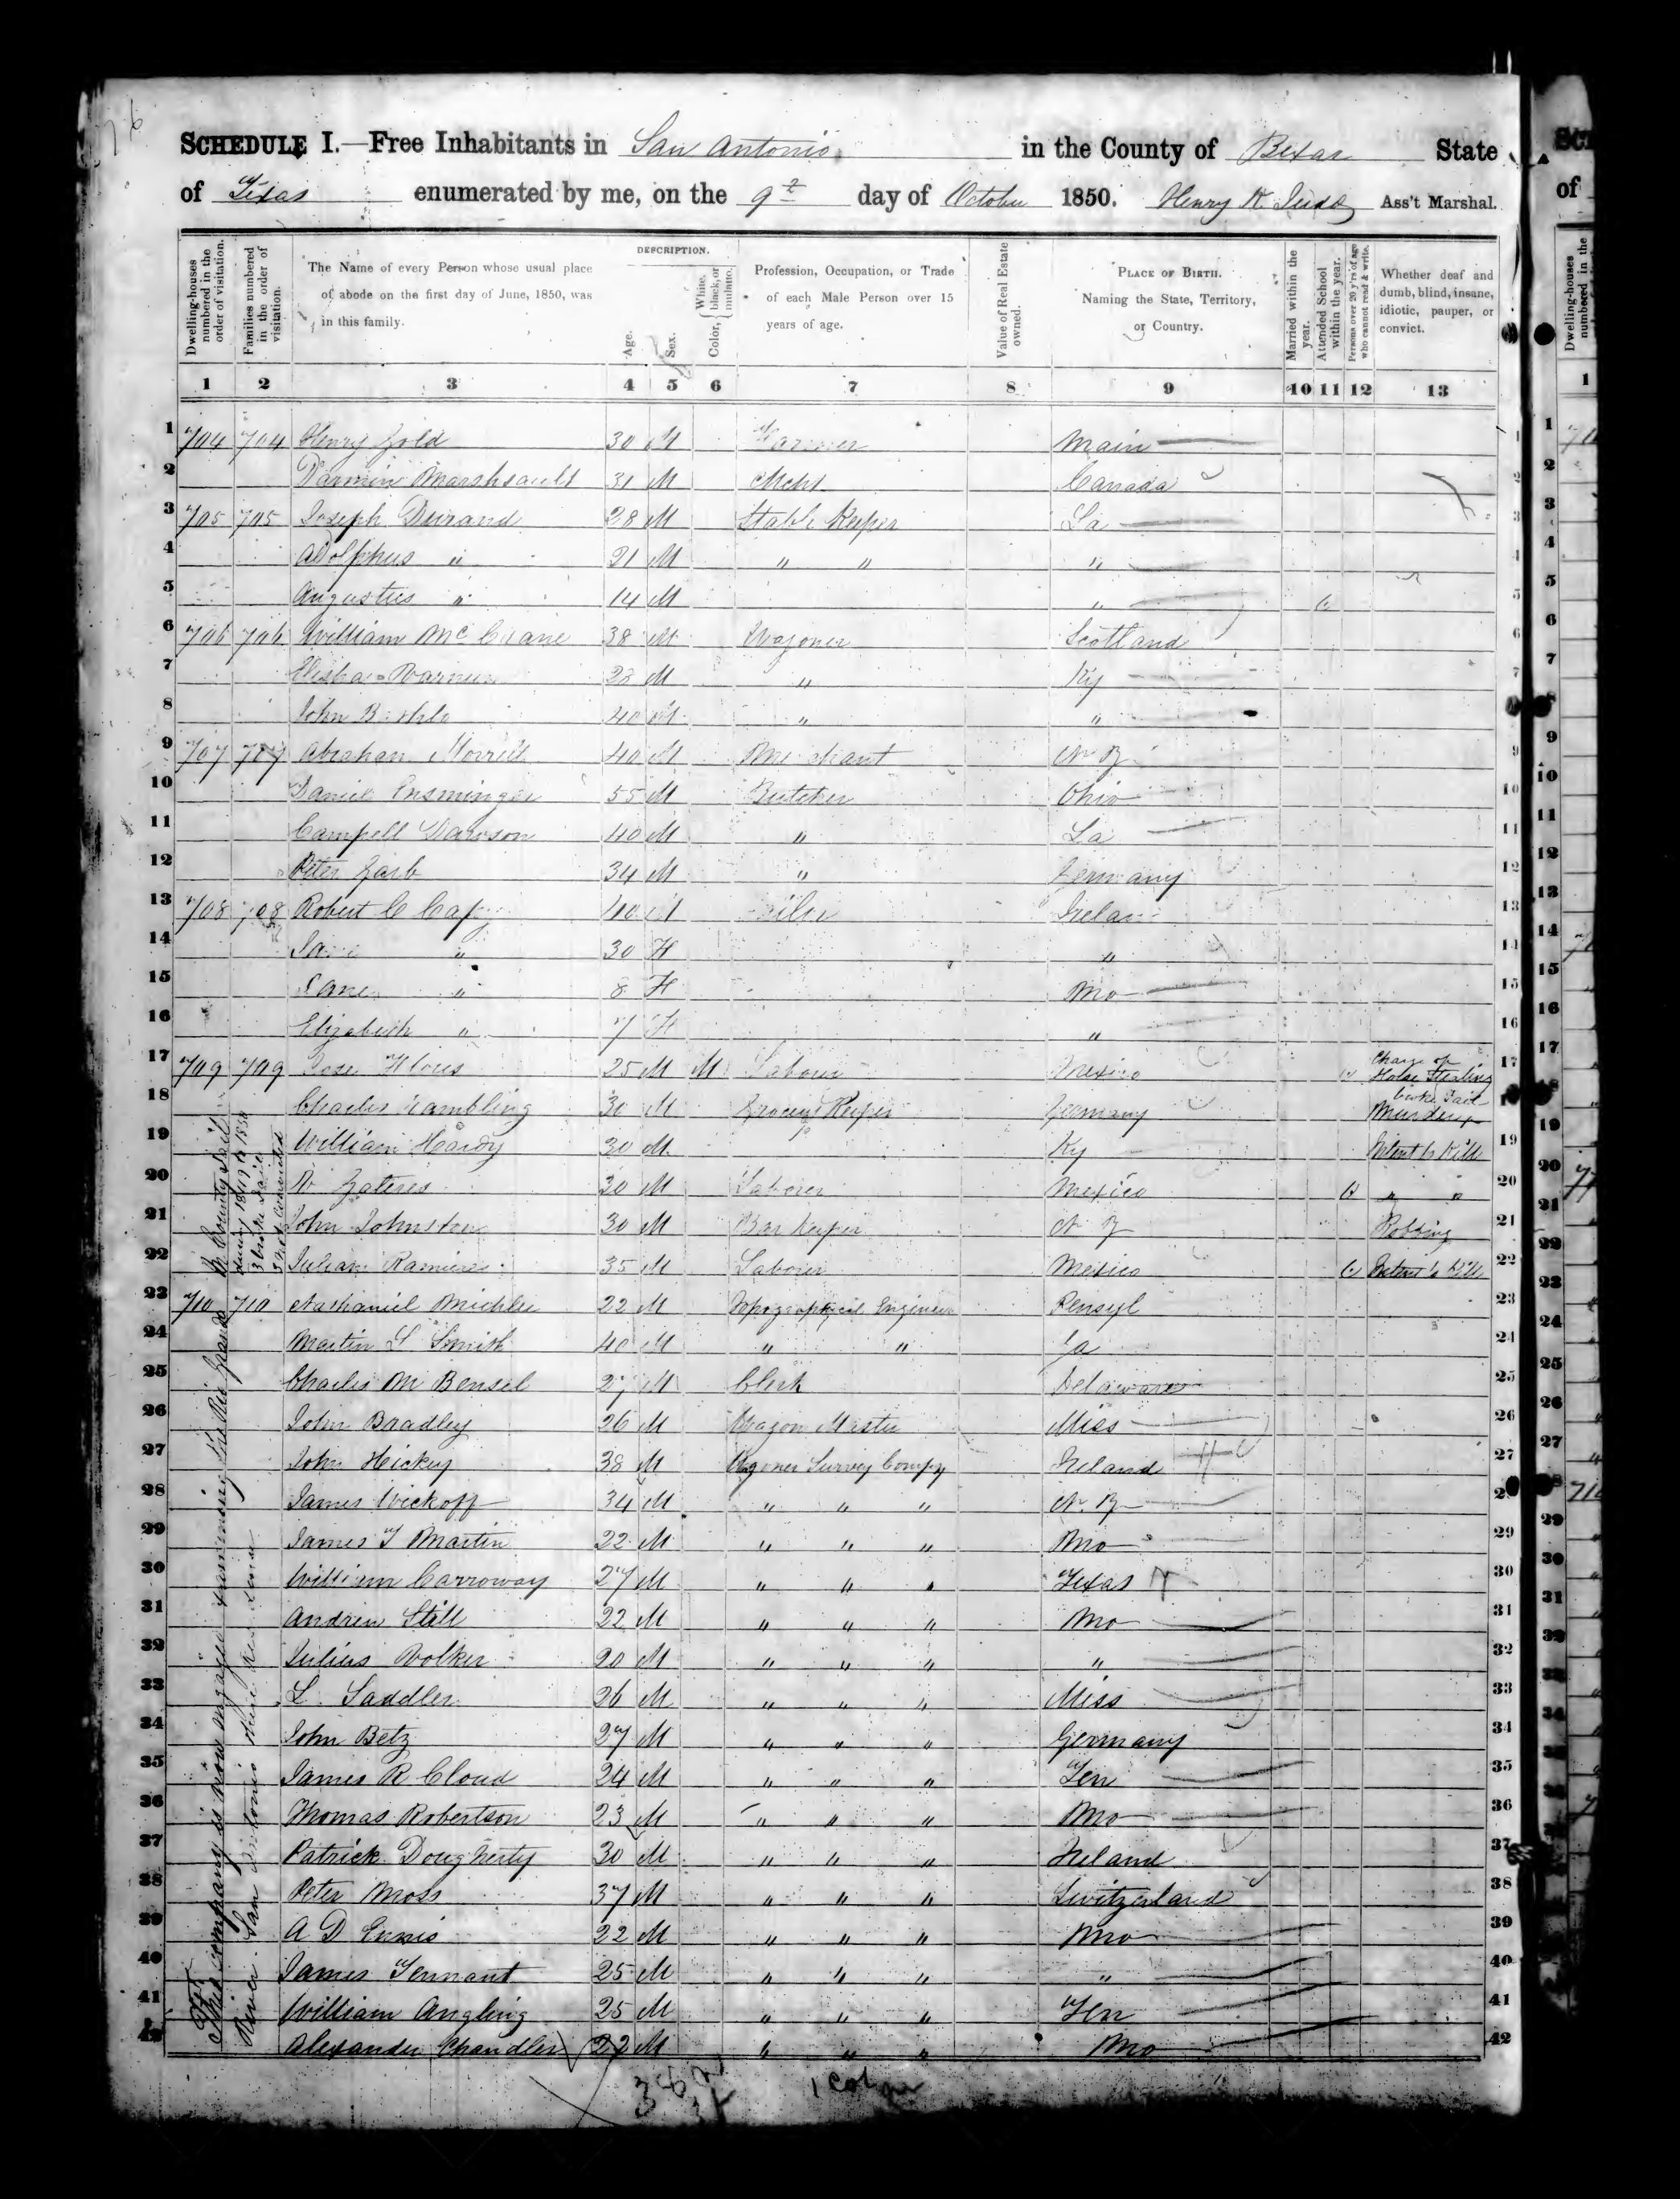 SCHEDULE I.—Free Inhabitants in San Antonio in the County of Bexar State
of Texas enumerated by me, on the 9th day of October 1850. Henry K. Judd Ass't Marshal.
Dwelling-houses numbered in the order of visitation.
Families numbered in the order of visitation.
The Name of every Person whose usual place of abode on the first day of June, 1850, was in this family.
DESCRIPTION.
Age.
Sex.
Color, { White, black, or mulatto.
Profession, Occupation, or Trade of each Male Person over 15 years of age.
Value of Real Estate owned.
PLACE OF BIRTH. Naming the State, Territory, or Country.
Married within the year.
Attended School within the year.
Persons over 20 y'rs of age who cannot read & write.
Whether deaf and dumb, blind, insane, idiotic, pauper, or convict.
1 2 3 4 5 6 7 8 9 10 11 12 13
1 704 704 Henry 30 M Main 1
2 31 M Mcht Canada 2
3 705 705 Joseph Durand 28 M Stable Keeper La 3
4 Adolphus " 21 M " " " 4
5 Augustus " 14 M " 5
6 706 706 William 38 M Wagoner Scotland 6
7 Elisha 28 M " Ky 7
8 John 40 M " " 8
9 707 707 Abraham Morrell 40 M Merchant 9
10 Daniel Ensminger 55 M Butcher Ohio 10
11 Campell Dawson 40 M " La 11
12 Peter 34 M " Germany 12
13 708 708 Robert C 40 M Ireland 13
14 Jane " 30 F " 14
15 Jane " 8 F Mo 15
16 Elizabeth " 7 F " 16
17 709 709 Jose Flores 25 M M Laborer Mexico Charge of Horse Stealing broke Jail 17
18 Charles 30 M Grocery Keeper Germany Murder
19 William Hardy 30 M Ky Intent to Kill 19
20 30 M Laborer Mexico " " 20
21 John Johnston 30 M Bar Keeper N Y Robbing 21
22 Julian Ramires 35 M Laborer Mexico Intent to Kill 22
23 710 710 Nathaniel Michler 22 M Topographical Engineer Pensyl 23
24 Martin L Smith 40 M " " 24
25 Charles M Bensel 27 M Clerk Delaware 25
26 John Bradley 26 M Wagon Master Miss 26
27 John Hickey 38 M Wagoner Survey Compy Ireland 27
28 James Wickoff 34 M " " "
29 James T Martin 22 M " " " Mo 29
30 William Carroway 27 M " " " Texas 30
31 Andrew Still 22 M " " " Mo 31
32 Julius Volker 20 M " " " " 32
33 L. Saddler 26 M " " " Miss 33
34 John Betz 27 M " " " Germany 34
35 James R Cloud 24 M " " " Ten 35
36 Thomas Robertson 23 M " " " Mo 36
37 Patrick Dougherty 30 M " " " Ireland 37
38 Peter Moss 37 M " " " Switzerland 38
39 A D Ennis 22 M " " " Mo 39
40 James Tennant 25 M " " " " 40
41 William Angling 25 M " " " Ten 41
42 Alexander Chandler 22 M " " " Mo 42
This company is now engaged running the Rio Grande
River San Antonio
38
1 Col